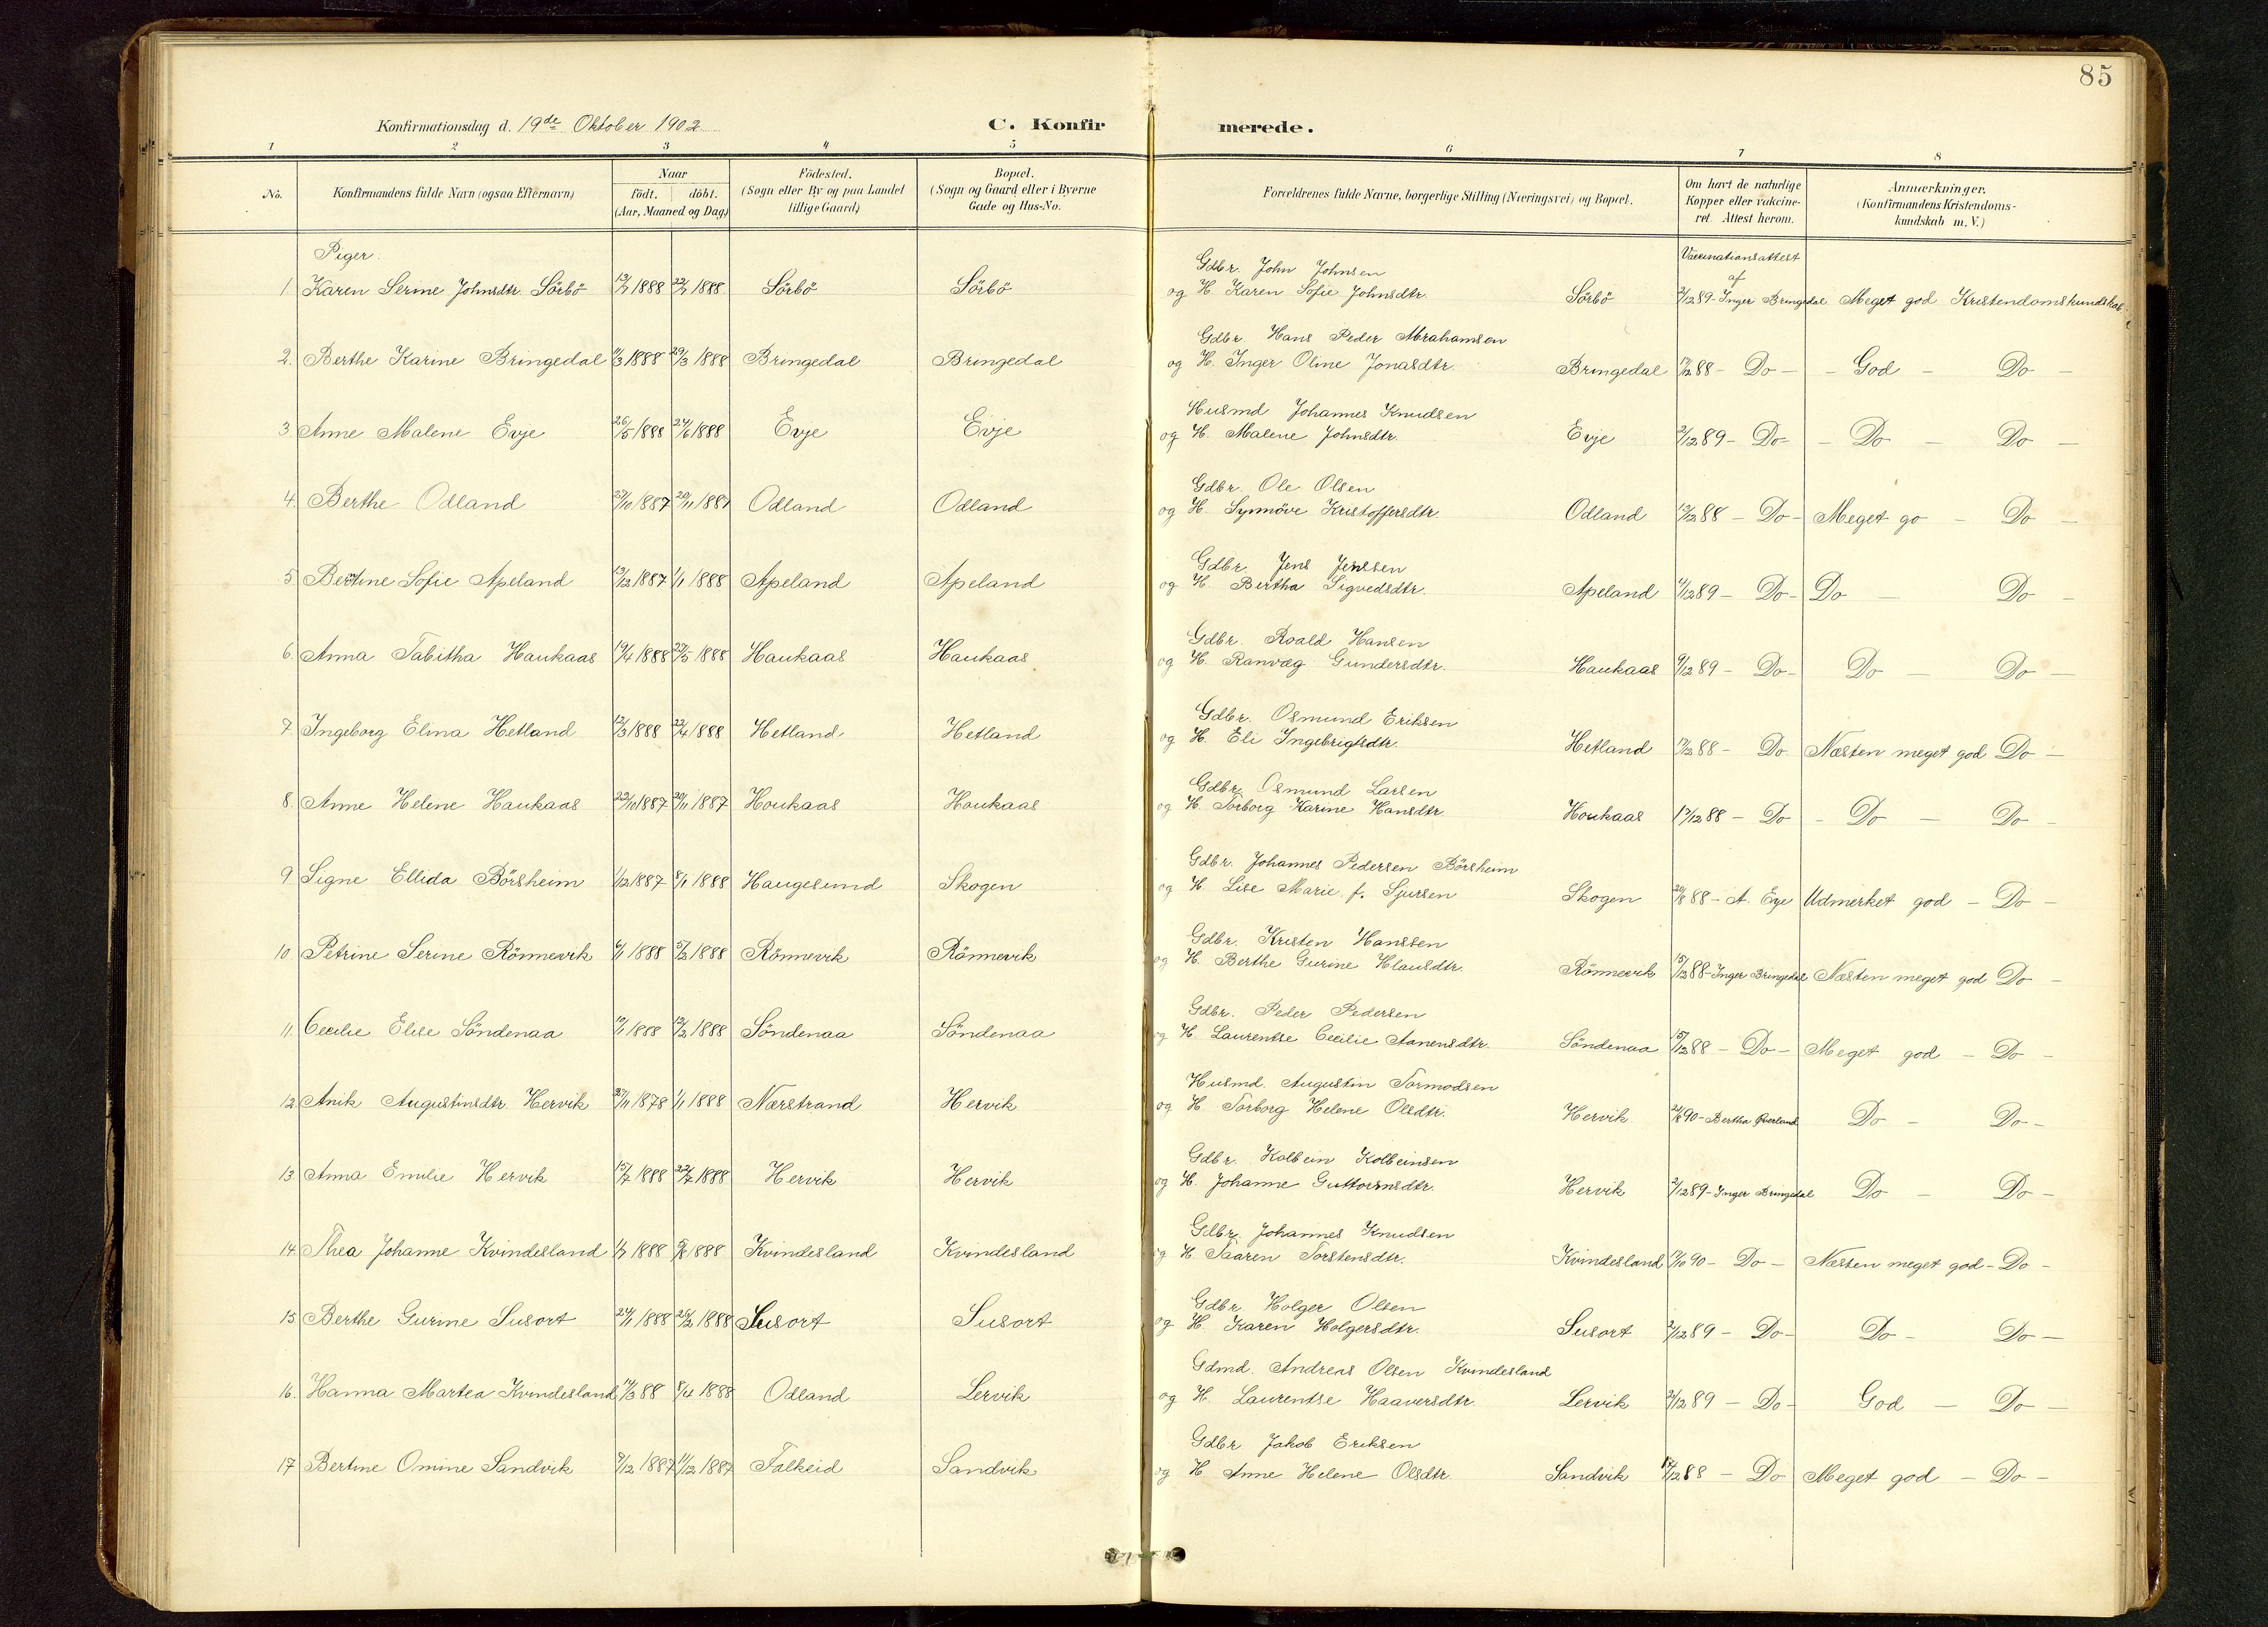 85
Konfirmationsdag d. 19de Oktober 1902
C. Konfirmerede.
1 2 3 4 5 6 7 8
No.
Konfirmandens fulde Navn (ogsaa Efternavn)
Naar
födt. döbt.
(Aar, Maaned og Dag)
Födested.
(Sogn eller By og paa Landet
tillige Gaard)
Bopæl.
(Sogn og Gaard eller i Byerne
Gade og Hus-No.
Forældrenes fulde Navne, borgerlige Stilling (Næringsvei) og Bopæl.
Om havt de naturlige
Kopper eller vakcine-
ret. Attest herom.
Anmærkninger.
(Konfirmandens Kristendoms-
kundskab m. V.)
Piger:
Vaccinationsattest
af
Gdbr. John Johnsen
1 Karen Serine Johnsdtr. Sörbö 1888 1888 Sörbö Sörbö og H. Karen Sofie Johnsdtr. Sörbö 2/12 89 - Inger Bringedal Meget god Kristendomskundskab
Gdbr Hans Peder Abrahamsen
2. Berthe Karine Bringedal 1888 29/3 1888 Bringedal Bringedal og H. Inger Oline Jonasdtr. Bringedal 88 - Do - - God - Do -
Husmd Johannes Knudsen
3 Anne Malene Evje 26/5 1888 24/6 1888 Evje Evje og H. Malene Johnsdtr. Evje 2/12 89 - Do - - Do - Do -
Gdbr. Ole Olsen
4. Berthe Odland 1887 20/11 1887 Odland Odland og H. Synnöve Kristoffersdtr. Odland 88 - Do - Meget go - Do -
Gdbr. Jens Jenssen
5 Bertine Sofie Apeland 13/12 1887 1/1 1888 Apeland Apeland og H. Bertha Sigvedsdtr. Apeland 89 - Do - Do - Do -
Gdbr. Roald Hansen
6. Anna Tabitha Haukaas 19/4 1888 1888 Haukaas Haukaas og H. Ranvæg Gundersdtr. Haukaas 9/12 89 - Do - Do - Do -
Gdbr. Osmund Eriksen
7. Ingeborg Elina Hetland 12/3 1888 22/4 1888 Hetland Hetland og H. Eli Ingebrigtsdtr. Hetland 88 - Do. Næsten meget god Do -
Gdbr. Osmund Larsen
8. Anne Helene Haukaas 22/10 1887 20/11 1887 Houkaas Houkaas og H. Torborg Karine Hansdtr. Houkaas 88 - Do - Do - Do -
Gdbr. Johannes Pedersen Börsheim
9 Signe Ellida Börsheim 1/12 1887 8/1 1888 Haugesund Skogen og H. Lise Marie f. Sjursen Skogen 88 - A. Eye Udmerket god - Do -
Gdbr. Kristen Hanssen
10. Petrine Serine Rönnevik 6/1 1888 5/2 1888 Rönnevik Rönnevik og H. Berthe Gurine Klausdtr. Rönnevik 15/12 88 - Inger Bringedal Næsten meget god Do -
Gdbr. Peder Pedersen
11. Cecilie Elise Söndenaa 1888 12/2 1888 Söndenaa Söndenaa og H. Laurentse Cecilie Aanensdtr. Söndenaa 15/12 88 - Do - Meget god - Do -
Husmd. Augustin Tormodsen
12. Anik Augustinsdtr. Hervik 1878 1/1 1888 Nærstrand Hervik og H. Torborg Helene Olsdtr. Hervik 90 - Bertha Överland Do - Do -
Gdbr. Kolbein Kolbeinsen
13. Anna Emilie Hervik 15/7 1888 22/7 1888 Hervik Hervik og H. Johanne Guttormsdtr. Hervik 2/12 89 - Inger Bringedal Do - Do -
Gdbr. Johannes Knudsen
14. Thea Johanne Kvindesland 1/7 1888 5/8 1888 Kvindesland Kvindesland og H. Taaren Torstensdtr. Kvindesland 90 - Do - Næsten meget god - Do -
Gdbr. Holger Olsen
15 Berthe Gurine Susort 24/1 1888 26/2 1888 Susort Susort og H. Karen Holgersdtr. Susort 2/12 89 - Do - Do - Do -
Gdmd. Andreas Olsen Kvindesland
16. Hanna Martea Kvindesland 14/3 88 8/4 1888 Odland Lervik og H. Laurentse Haaversdtr. Lervik 89 - Do - God - Do -
Gdbr Jakob Eriksen
17 Bertine Omine Sandvik 1887 11/12 1887 Falkeid Sandvik og H. Anne Helene Olsdtr. Sandvik 88 - Do Meget god - Do -